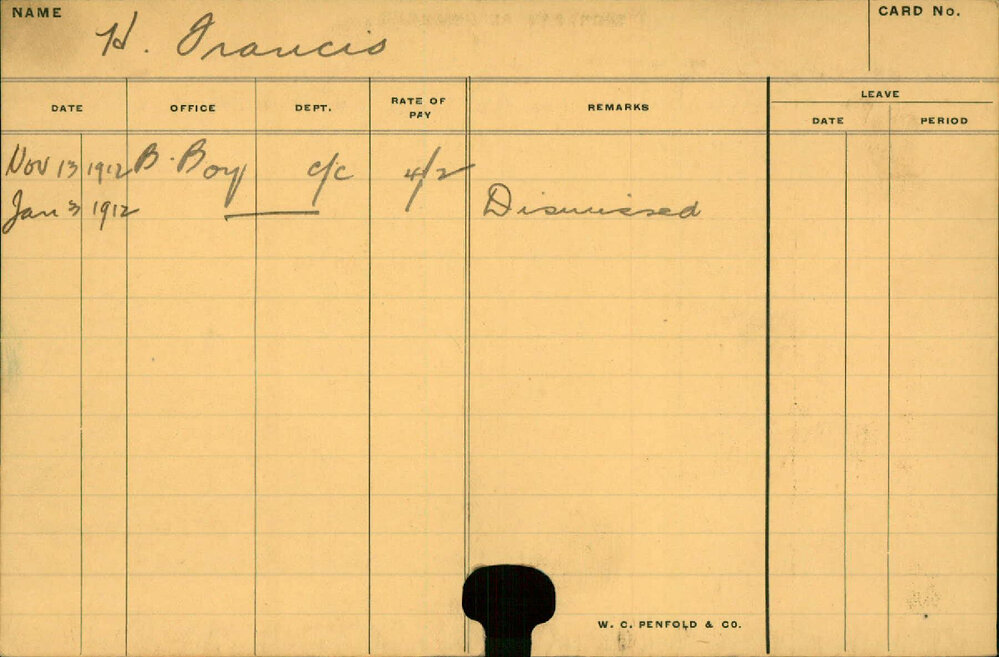 NAME H. Francis CARD No.
DATE OFFICE DEPT. RATE OF PAY REMARKS LEAVE
DATE PERIOD
Nov 13 1912 B. Boy c/c 4/2
Jan 3 1912 Dismissed
W. C. PENFOLD & CO.